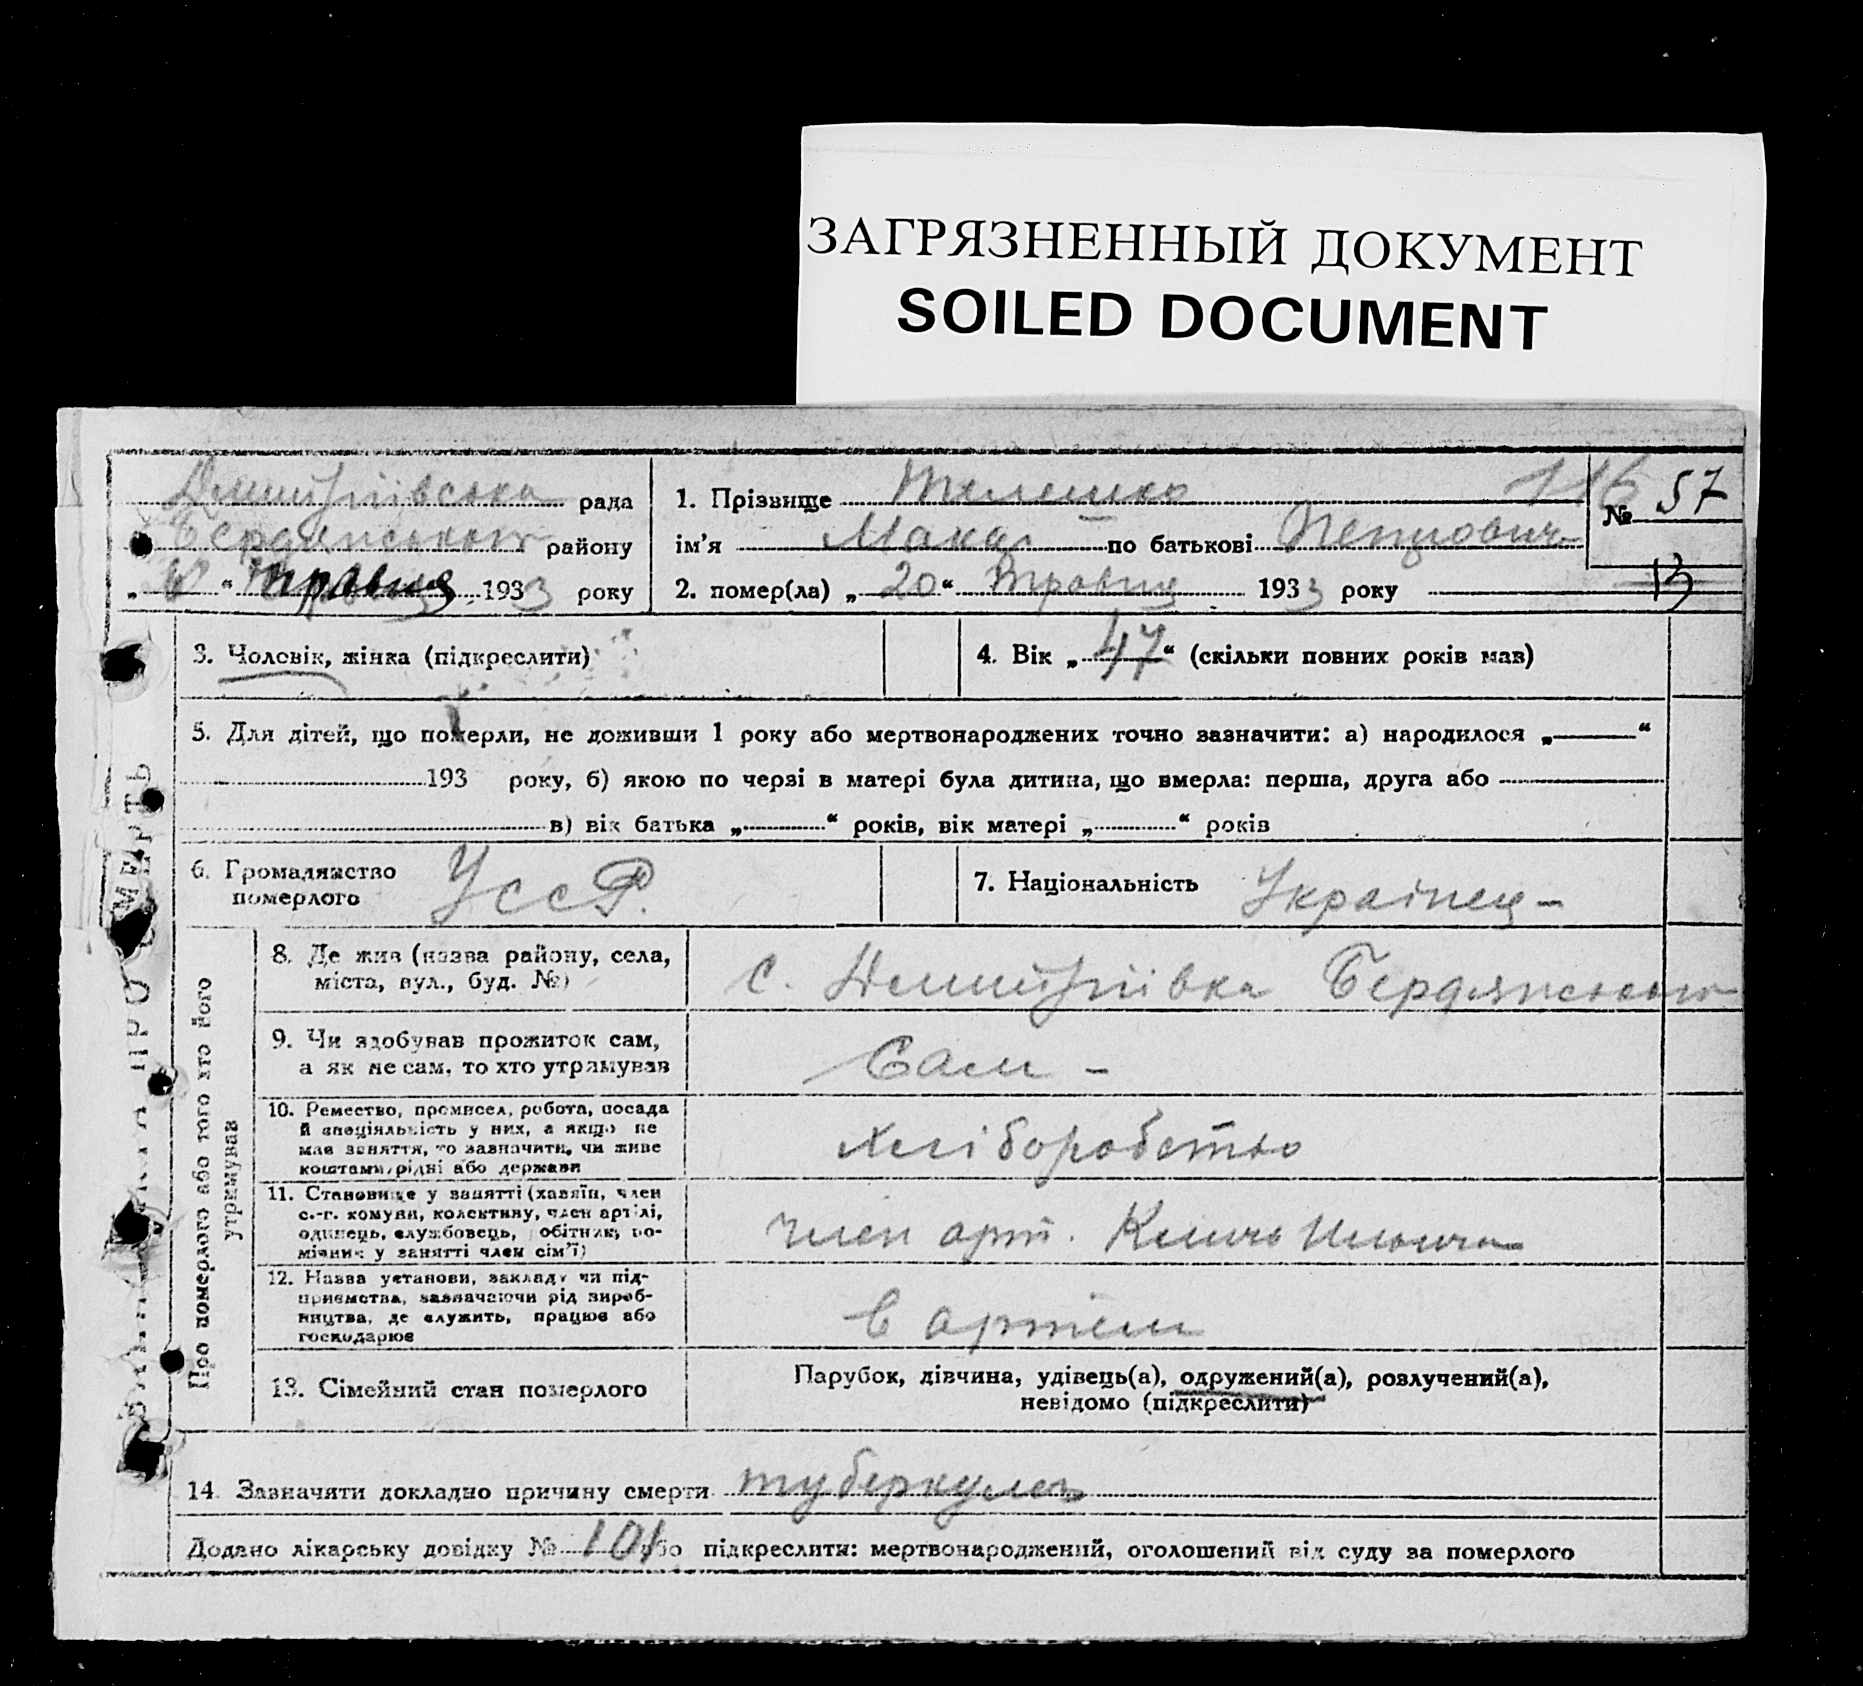 ЗАГРЯЗНЕННЫЙ ДОКУМЕНТ
SOILED DOCUMENT
Дмитріївська рада
Бердянського району
„ “ травня 1933 року
1. Прізвище Телешко
116
№ 57
ім’я Макар по батькові Петрович
2. помер(ла) „20“ травня 1933 року
13
3. Чоловік, жінка (підкреслити)
4. Вік „47“ (скільки повних років мав)
5. Для дітей, що померли, не доживши 1 року або мертвонароджених точно зазначити: а) народилося „ “
193 року, б) якою по черзі в матері була дитина, що вмерла: перша, друга або
в) вік батька „ “ років, вік матері „ “ років
6. Громадянство
померлого
УССР.
7. Національність Українец-
ПРО СМЕРТЬ
Про померлого або того хто його
утримував
8. Де жив (назва району, села,
міста, вул., буд. №)
с. Дмитріївка Бердянського
9. Чи здобував прожиток сам,
а як не сам, то хто утримував
Сам -
10. Ремество, промисел, робота, посада
й спеціяльність у них, а якщо не
мав заняття, то зазначити, чи живе
коштами рідні або держави
хліборобство
11. Становище у занятті (хазяїн, член
с.-г. комуни, колективу, член артілі,
одинець, службовець, робітник, по-
мічник у занятті член сім’ї)
член арт. Ильича
12. Назва установи, закладу чи під-
приємства, зазначаючи рід вироб-
ництва, де служить, працює або
господарює
в артели
13. Сімейний стан померлого
Парубок, дівчина, удівець(а), одружений(а), розлучений(а),
невідомо (підкреслити)
14. Зазначити докладно причину смерти туберкулез
Додано лікарську довідку № 101 або підкреслити: мертвонароджений, оголошений від суду за померлого